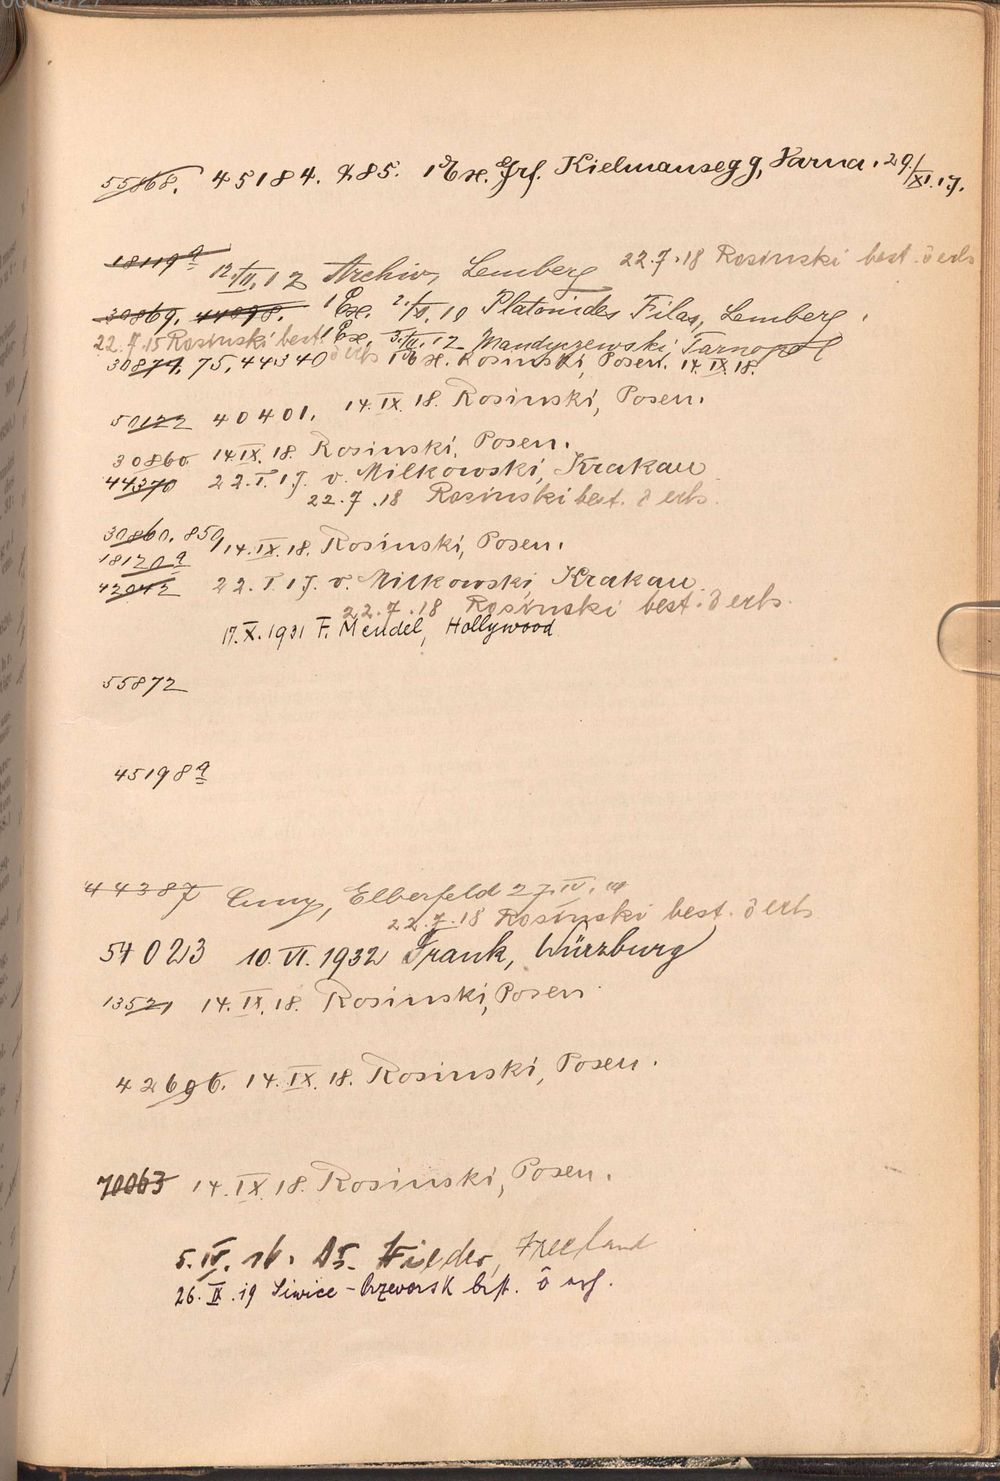 55868. 45184. 285. 1 Ex. Grf. Kielmansegg, Varna. 29/XI.17.
18119a
12./II.12 Archiv, Lemberg 22.7.18 Rosinski best. ō erh
30869. 44898. 1 Ex. 2./XI.10 Platonides Filas, Lemberg.
22.7.15 Rosinski best. ō erh 1 Ex. 5./III.12 Mandyczewski Tarnopol
30871, 75, 44340 1 Ex. Rosinski, Posen. 14.IX.18.
50122 40401. 14.IX.18. Rosinski, Posen.
30860 14.IX.18. Rosinski, Posen.
44370 22.I.17. v. Milkowski, Krakau
22.7.18 Rosinski best. ō erh.
30860. 850, 14.IX.18. Rosinski, Posen.
18120a
42042 22.I.17. v. Milkowski, Krakau
22.7.18 Rosinski best. ō erh.
17.X.1931 F. Mendel, Hollywood
55872
45198a
44387 Cuny, Elberfeld 27.IV.
22.7.18 Rosinski best. ō erh
54023 10.VI.1932 Frank, Würzburg
13521 14.IX.18. Rosinski, Posen
42696. 14.IX.18. Rosinski, Posen.
70063 14.IX.18. Rosinski, Posen.
5.IV.16.
26.IX.19 best. ō erh.